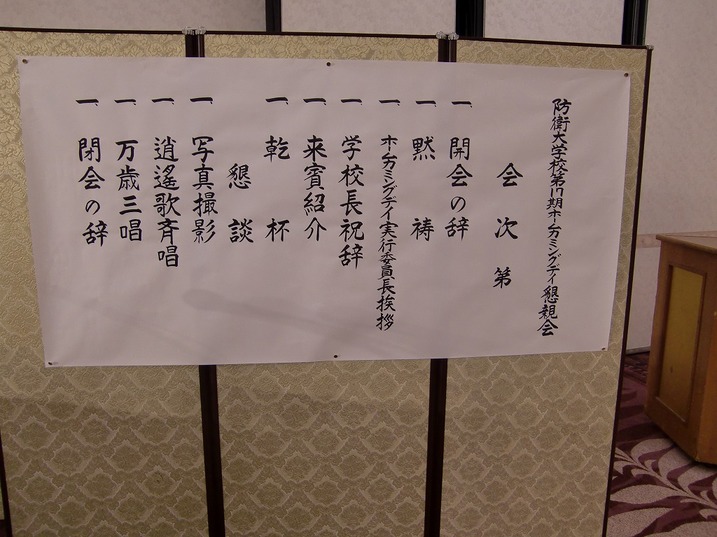 防衛大学校第17期ホームカミングデイ懇親会
会次第
一 開会の辞
一 黙祷
一 ホームカミングデイ実行委員長挨拶
一 学校長祝辞
一 来賓紹介
一 乾杯
懇談
一 写真撮影
一 逍遙歌斉唱
一 万歳三唱
一 閉会の辞